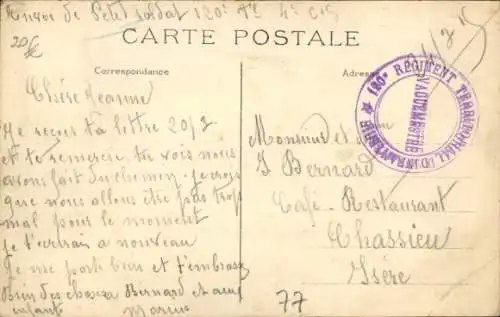 Envoi de Petit soldat 120e Tal 4e Cie
20f
CARTE POSTALE
Correspondance
Adresse
120e REGIMENT TERRITORIAL D'INFANTERIE
VAGUEMESTRE
Chère Jeanne
Je reçois ta lettre 20/2
et te remercie tu vois nous
avons fait du chemin je crois
que nous allons être pas trop
mal pour le moment
je t'ecrirai a nouveau
Je me porte bien et t'embrasse
Bien des choses a Bernard et aux
enfants
Marius
Monsieur et
J Bernard
Café-Restaurant
Chassieu
Isère
77